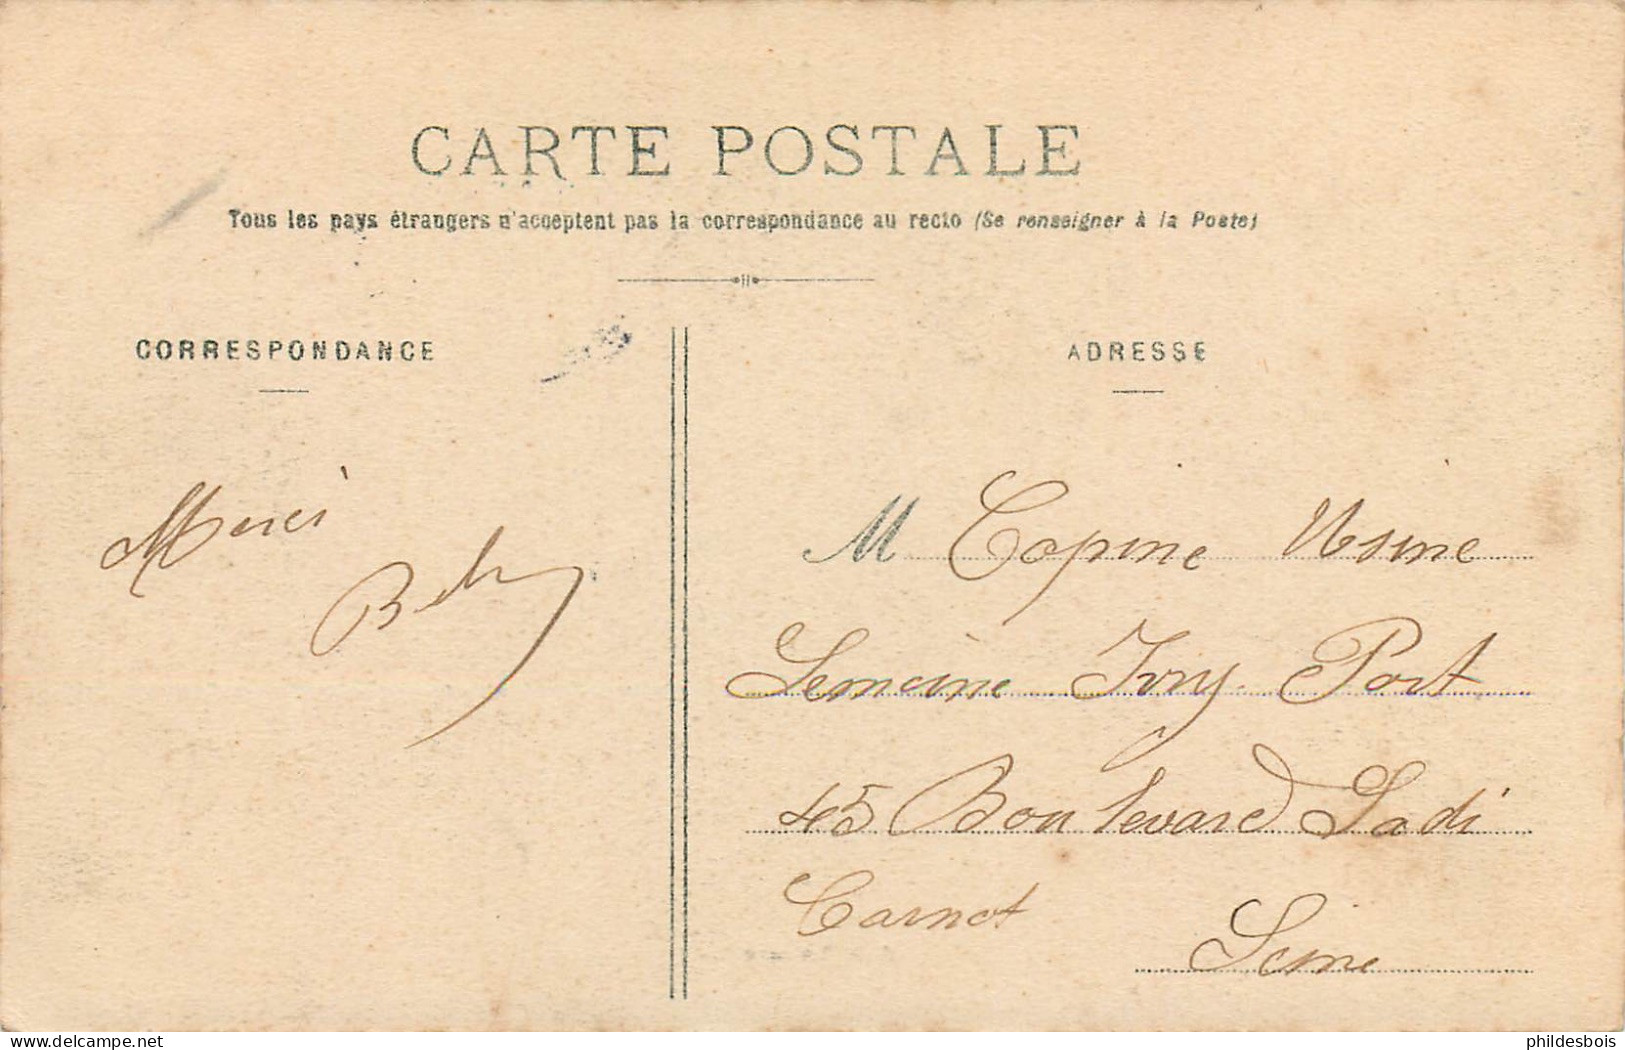 CARTE POSTALE
Tous les pays étrangers n'acceptent pas la correspondance au recto (Se renseigner à la Poste)
CORRESPONDANCE
ADRESSE
Merci
M Copine Usine
Lemoine Ivry Port
45 Boulevard Sadi
Carnot
Seine
delcampe.net
phildesbois